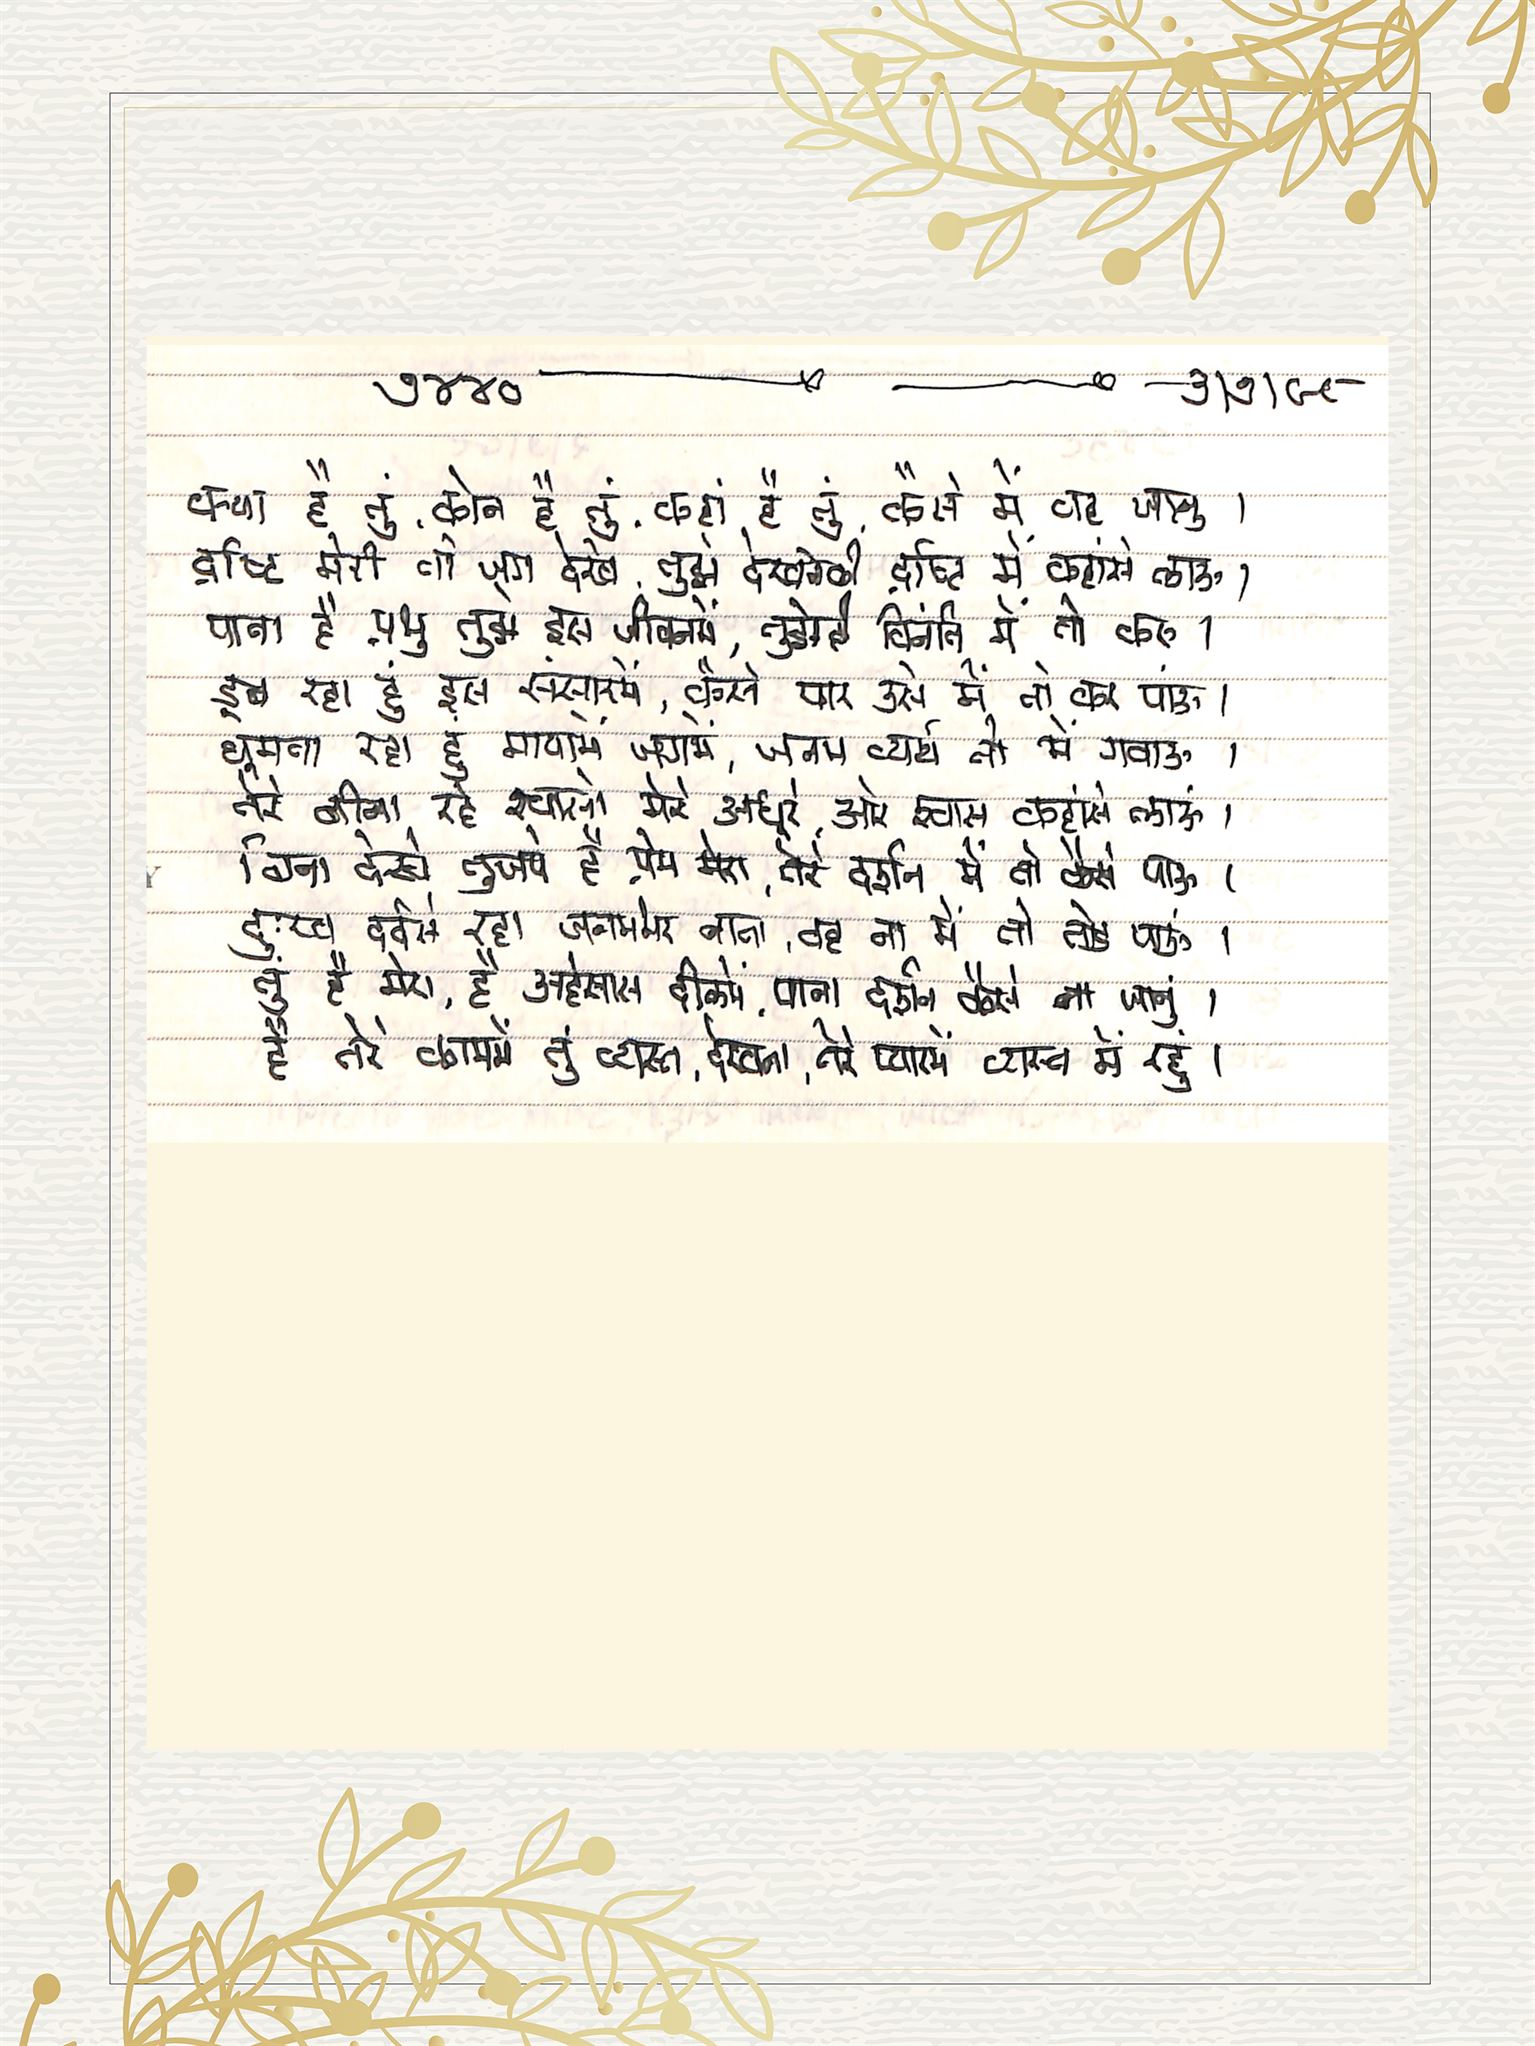 ७४४०
क्या है तुं, कोन है तुं, कहां है तुं, कैसे में यह जानु ।
द्रष्टि मेरी तो जग देखे, तुझे देखनेकी द्रष्टि में कहांसे लाऊ ।
पाना है प्रभु तुझे इस जीवनमें, तुझसे विनंति में तो करु ।
डूब रहा हुं इस संसारमें, कैसे पार उसे में तो कर पांऊ ।
घूमता रहा हुं मायामें जगमें, जनम व्यर्थ तो में गवाऊ ।
तेरे बीना रहे श्वासो मेरे अधूरे, ओर श्वास कहांसे लाऊं ।
बिना देखे तुजपे है प्रेम मेरा, तेरे दर्शन में तो कैसे पाऊ ।
दुःख दर्दसे रहा जनमभर नाता, वह ना में तो तोड पाऊं ।
तुं है मेरा, है अहेसास दीलमें, पाना दर्शन कैसे ना जानुं ।
है तेरे काममें तुं व्यस्त, देखना, तेरे प्यारमें व्यस्त में रहुं ।